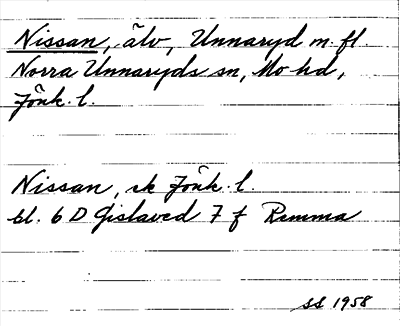 Nissan, älv, Unnaryd m. fl.
Norra Unnaryds sn, Mo hd,
Jönk. l.
Nissan, ek Jönk. l.
bl. 6 D Gislaved 7 f Rimma
SS 1958